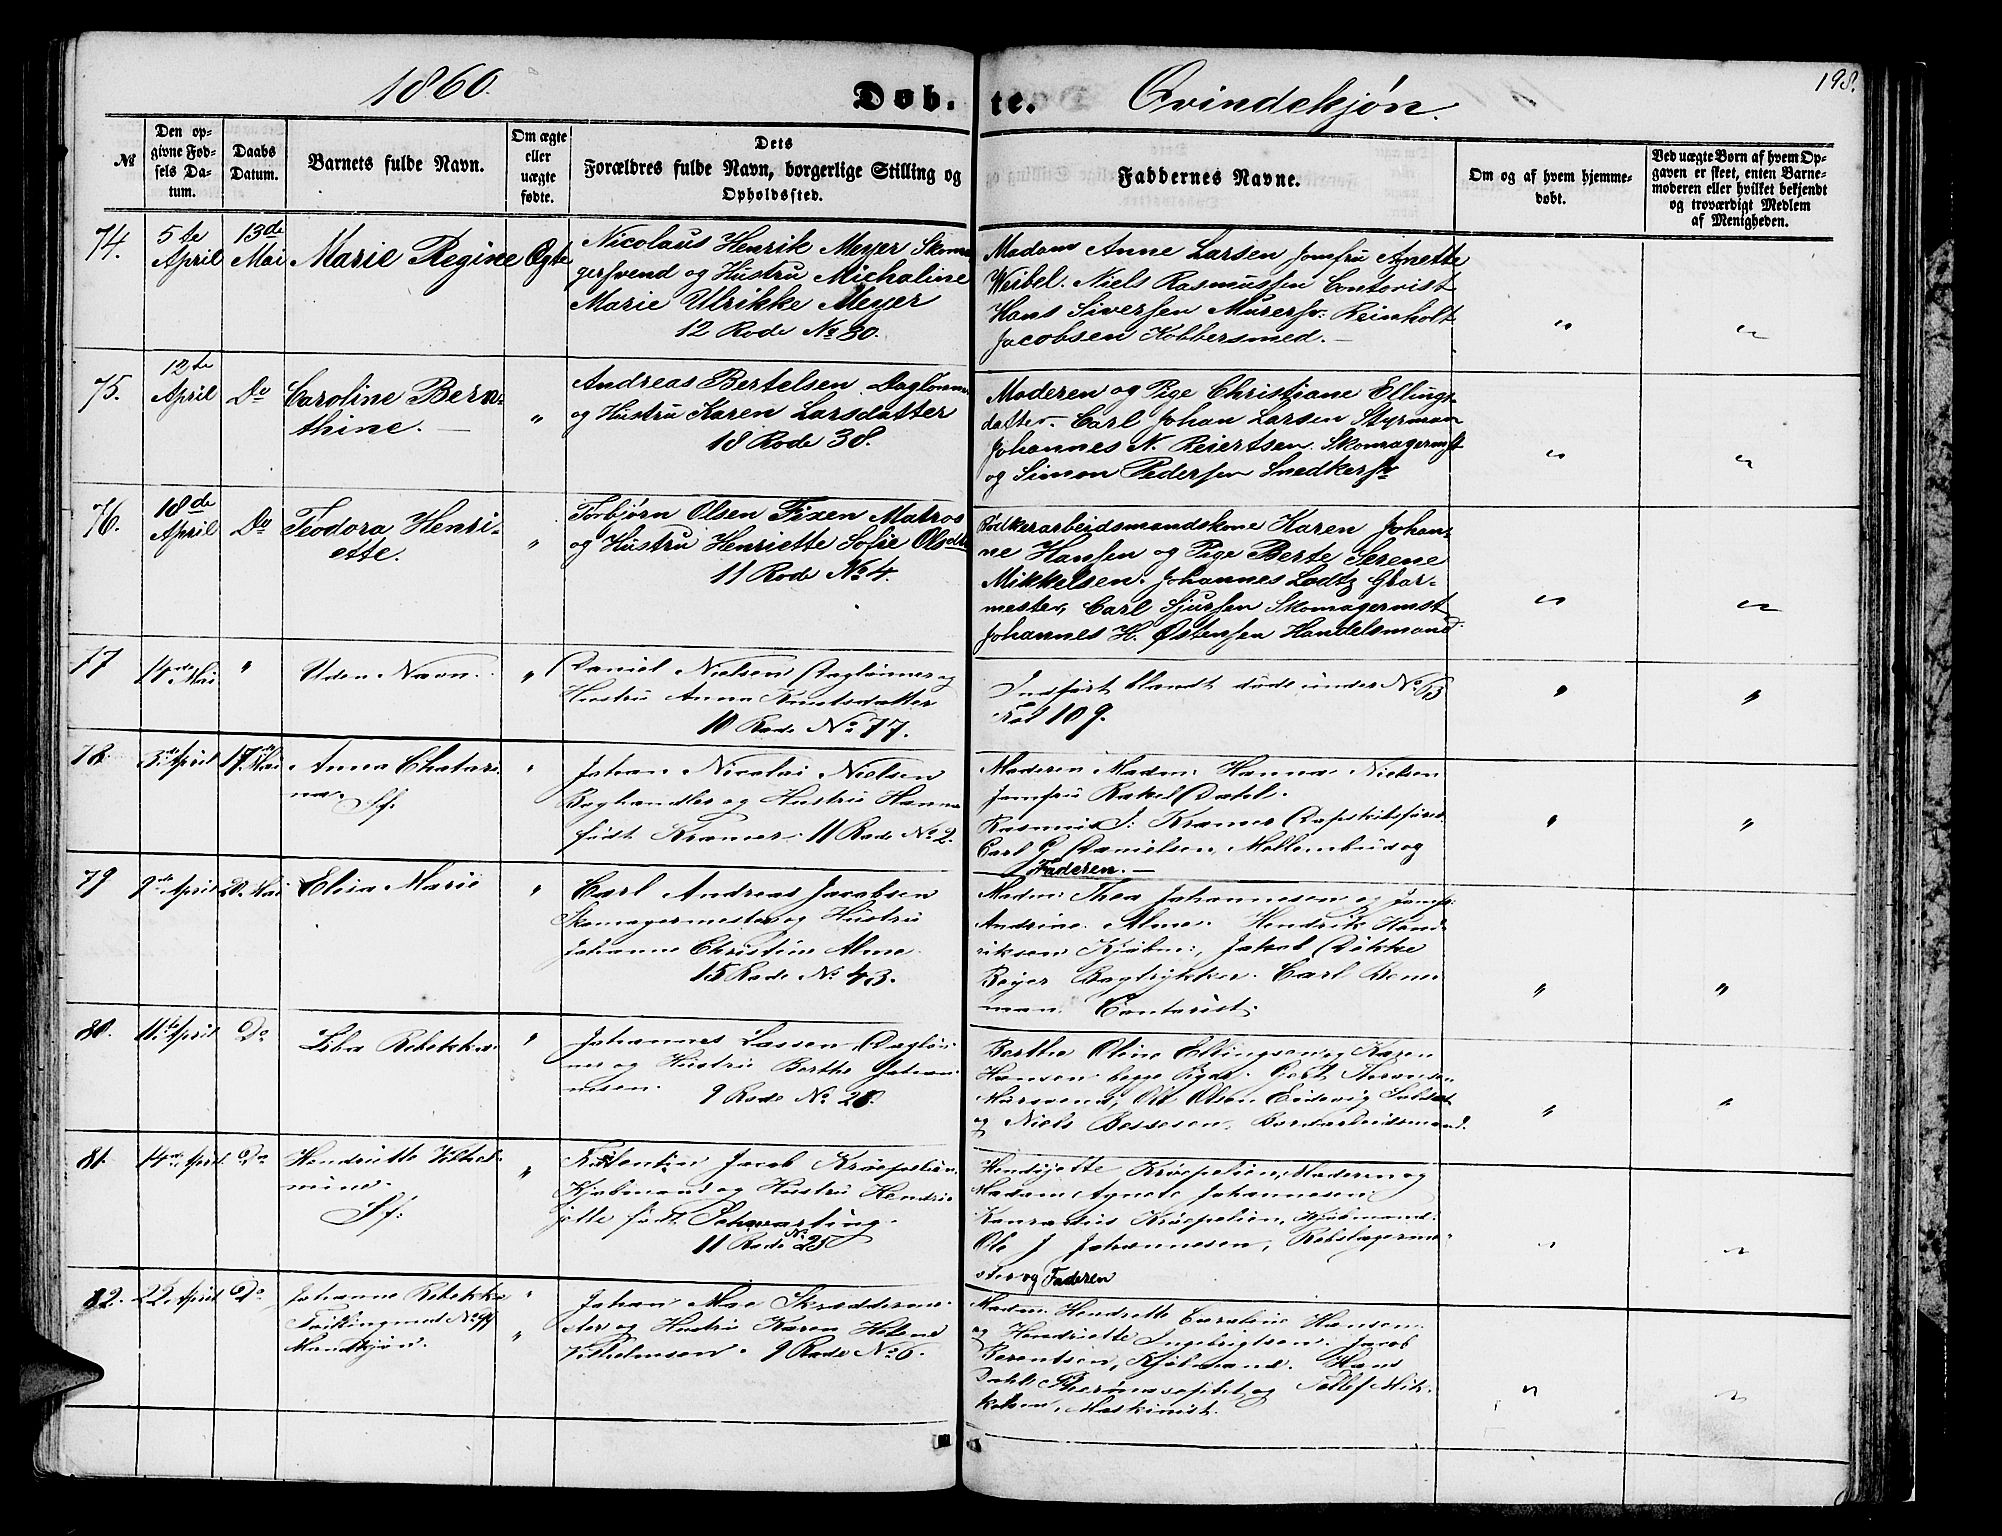 1860.
Døb-
te.
Qvindekjøn.
198.
№
Den op-
givne Fød-
sels Da-
tum.
Daabs
Datum.
Barnets fulde Navn.
Om ægte
eller
uægte
fødte.
Dets
Forældres fulde Navn, borgerlige Stilling og
Opholdssted.
Faddernes Navne.
Om og af hvem hjemme-
døbt.
Ved uægte Børn af hvem Op-
gaven er skeet, enten Barne-
moderen eller hvilket bekjendt
og troværdigt Medlem
af Menigheden.
74.
5te
April
13de
Mai
Marie Regine
Ægte
Nicolaus Henrik Meyer Skoma
gersvend og Hustru Michaline
Marie Ulrikke Meyer
12 Rode No 30.
Madam Anne Larsen Jomfru Agnette
Weibel. Niels Rasmussen Contorist
Hans Siversen Murersv. Reinholt
Jacobsen Kobbersmed. —
"
"
75.
12te
April
Do
Caroline Bern-
thine. —
"
Andreas Bertelsen Daglønner
og Hustru Karen Larsdatter
18 Rode 38.
Moderen og Pige Christiane Ellings-
datter. Carl Johan Larsen Styrman
Johannes N. Reiertsen Skomagermst
og Simon Pedersen Snedkersv
"
"
76.
18de
April
Do
Teodora Henri-
ette.
"
Torbjørn Olsen Fixen Matros
og Hustru Henriette Sofie Olsdtr
11 Rode No 4.
Bødkerarbeidsmandskone Karen Johan-
ne Hansen og Pige Berte Serene
Mikkelsen. Johannes Lodtz Glar-
mester, Carl Sjursen Skomagermst
Johannes H. Østensen Handelsmand.
"
"
77
14de Mai
"
Uden Navn.
"
Daniel Nielsen Daglønner og
Hustru Anna Knutsdatter
10 Rode No 77.
Indført blandt døde under No 63
Fol 109.
"
"
78.
3de April
17de Mai
Anna Chatari
na.
Sf.
"
Johan Nicolai Nielsen
Boghandler og Hustru Hanna
født Kramer. 11 Rode No 2.
Moderen Madm: Hanna Nielsen
Jomfru Rakel Dahl.
Rasmus J: Kramer Dampskibsfører
Carl G Danielsen, og
Faderen. —
"
"
79
9de April
20. Mai
Elisa Marie
"
Carl Andreas Jacobsen
Skomagermester og Hustru
Johanne Christine Alme.
15 Rode No 43.
Madm: Thea Johannesen og Jomfr:
Andrine Alme. Hendrik Hend
riksen Kjøbm:, Jakob Dekke
Beyer Bogtrykker. Carl Bene
man. Contorist.
"
"
80.
11te April
Do
Lisa Rebekka.
"
Johannes Lassen Dagløn-
ner og Hustru Berthe Johan
nesen.
9 Rode No 28.
Berthe Oline Ellingsen og Karen
Hansen begge Piger. Gert
Mursvend, Ole Olsen
og Niels Bessesen, Bordarbeidsmand.
"
"
81.
14de April.
Do
Hendriette Vilhel-
mine.
Sf:
"
Jacob Krøepelien
Kjøbmand og Hustru Hendri
jette født Schwarting.
11 Rode No 25
Hendrjette Krøepelien, Moderen og
Madam Agnete Johannesen
Konratius Krøepelien, Kjøbmand.
Ole J Johannesen, Rebslagerme-
ster og Faderen
"
"
82.
22. April
Do.
Johanne Rebekka
Tvilling med No 99
Mandkjøn.
"
"
Johan Moe Skræddermes-
ter og Hustru Karen Helene
Vilhelmsen. 9 Rode No 6.
Madm: Hendrette Caroline Hansen
og Hendriette Ingebrigtsen. Jacob
Berentsen, Kjøbmand. Hans
Dahl og Tollef Mik-
kelsen, Maskinist.
"
"